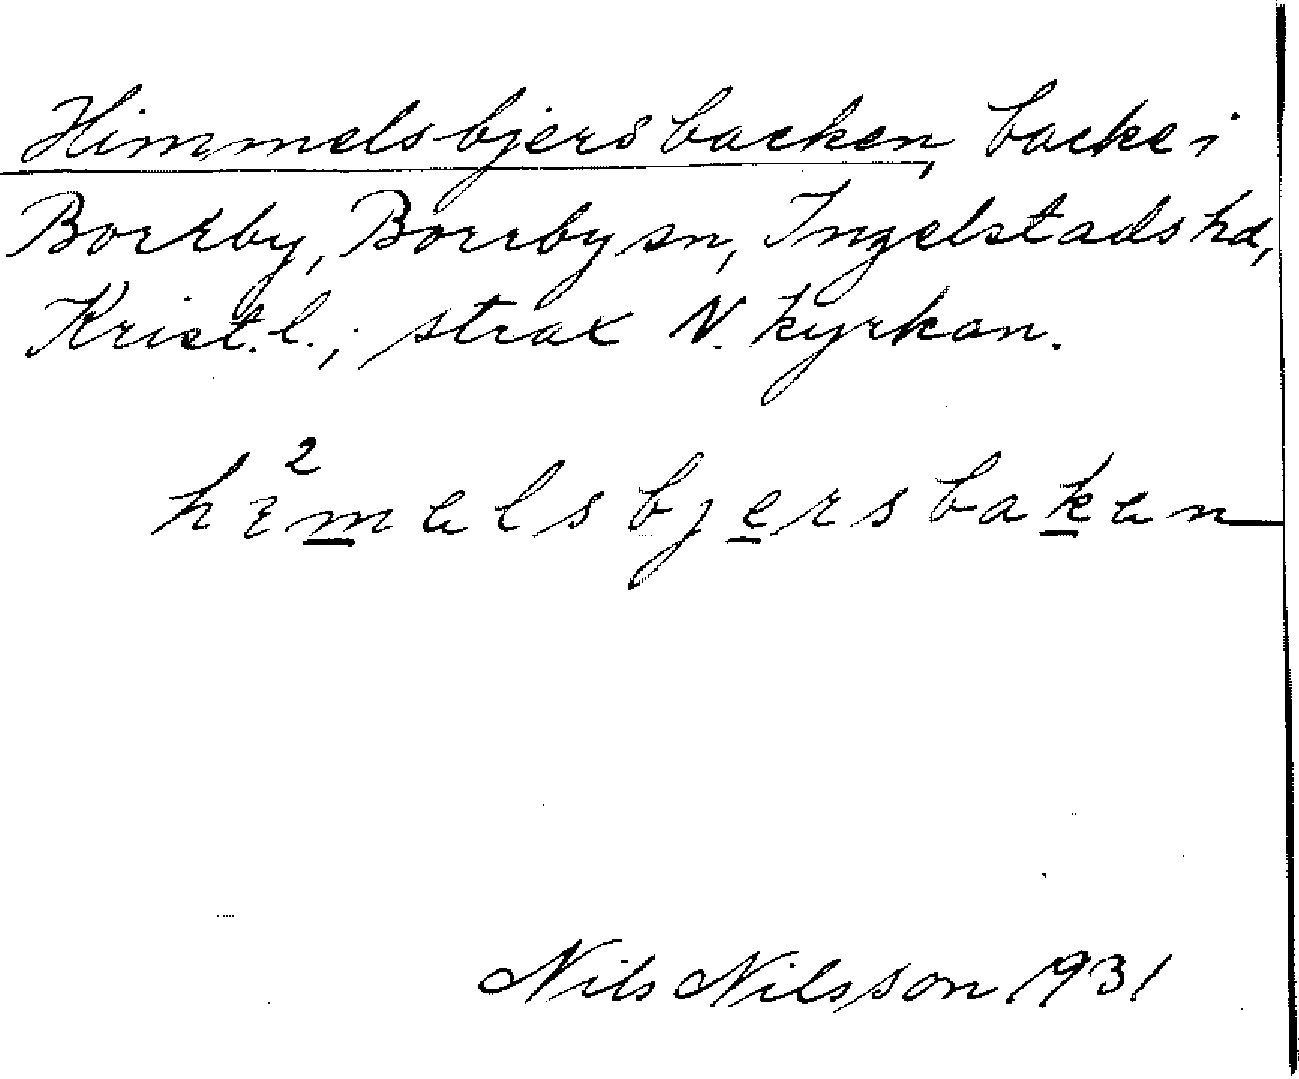 Himmelsbjersbacken, backe i
Borrby, Borrby sn, Ingelstads hd,
Krist. l.; strax N. kyrkan.
hi²melsbjersbaken
Nils Nilsson 1931